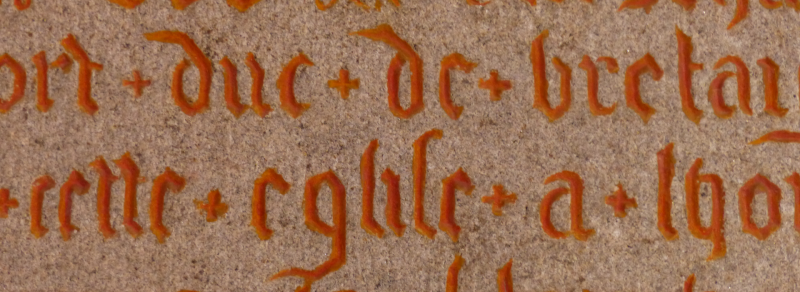 ort + duc + de + bretai
+ cette + egliſe + a + lhon